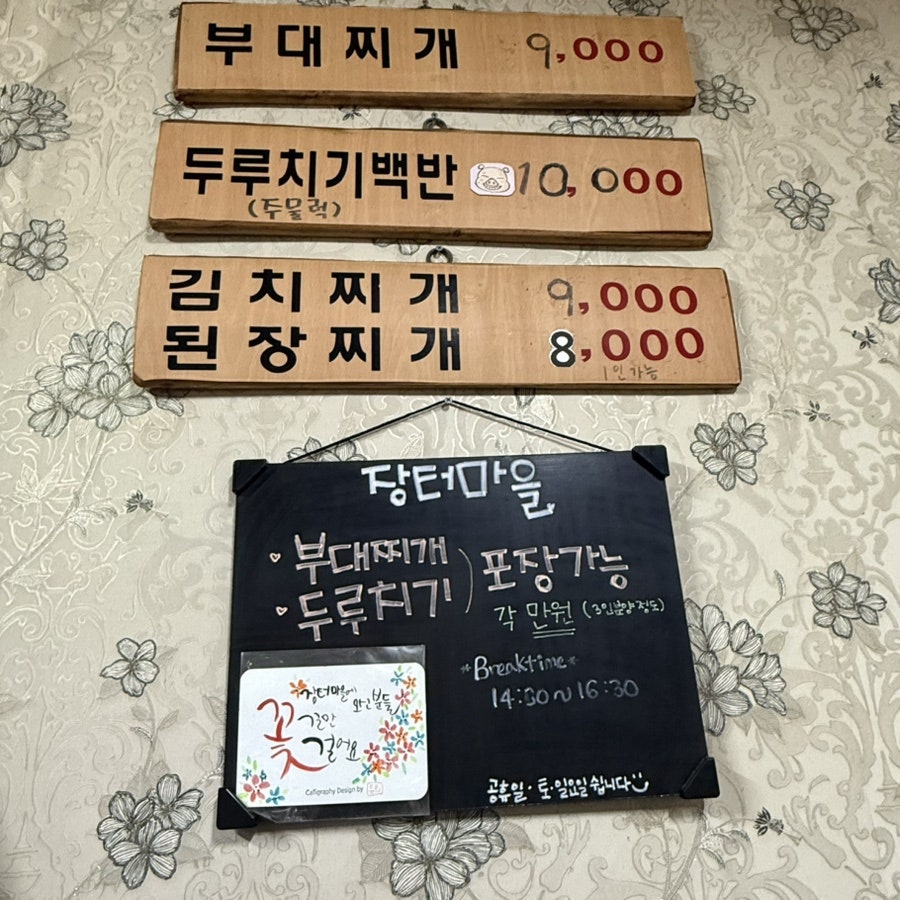 부대찌개 9,000
두루치기백반 10,000
(주물럭)
김치찌개 9,000
된장찌개 8,000
1인가능
장터마을
부대찌개
두루치기 ) 포장가능
각 만원 (3인분양정도)
*Breaktime*
14:30~16:30
장터마을에 오신분들
꽃
길만
걸어요
Calligraphy Design by
공휴일·토·일요일 쉽니다